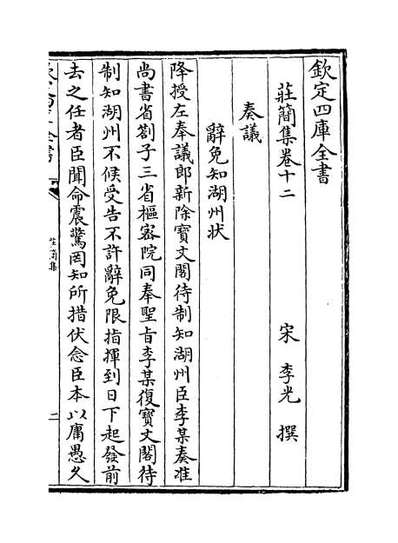 欽定四庫全書
莊簡集卷十二
宋　李光　撰
奏議
辭免知湖州狀
降授左奉議郎新除寳文閣待制知湖州臣李某奏准
尚書省劄子三省樞宻院同奉聖旨李某復寳文閣待
制知湖州不候受告不許辭免限指揮到日下起發前
去之任者臣聞命震驚罔知所措伏念臣本以庸愚久
欽定四庫全書
莊簡集